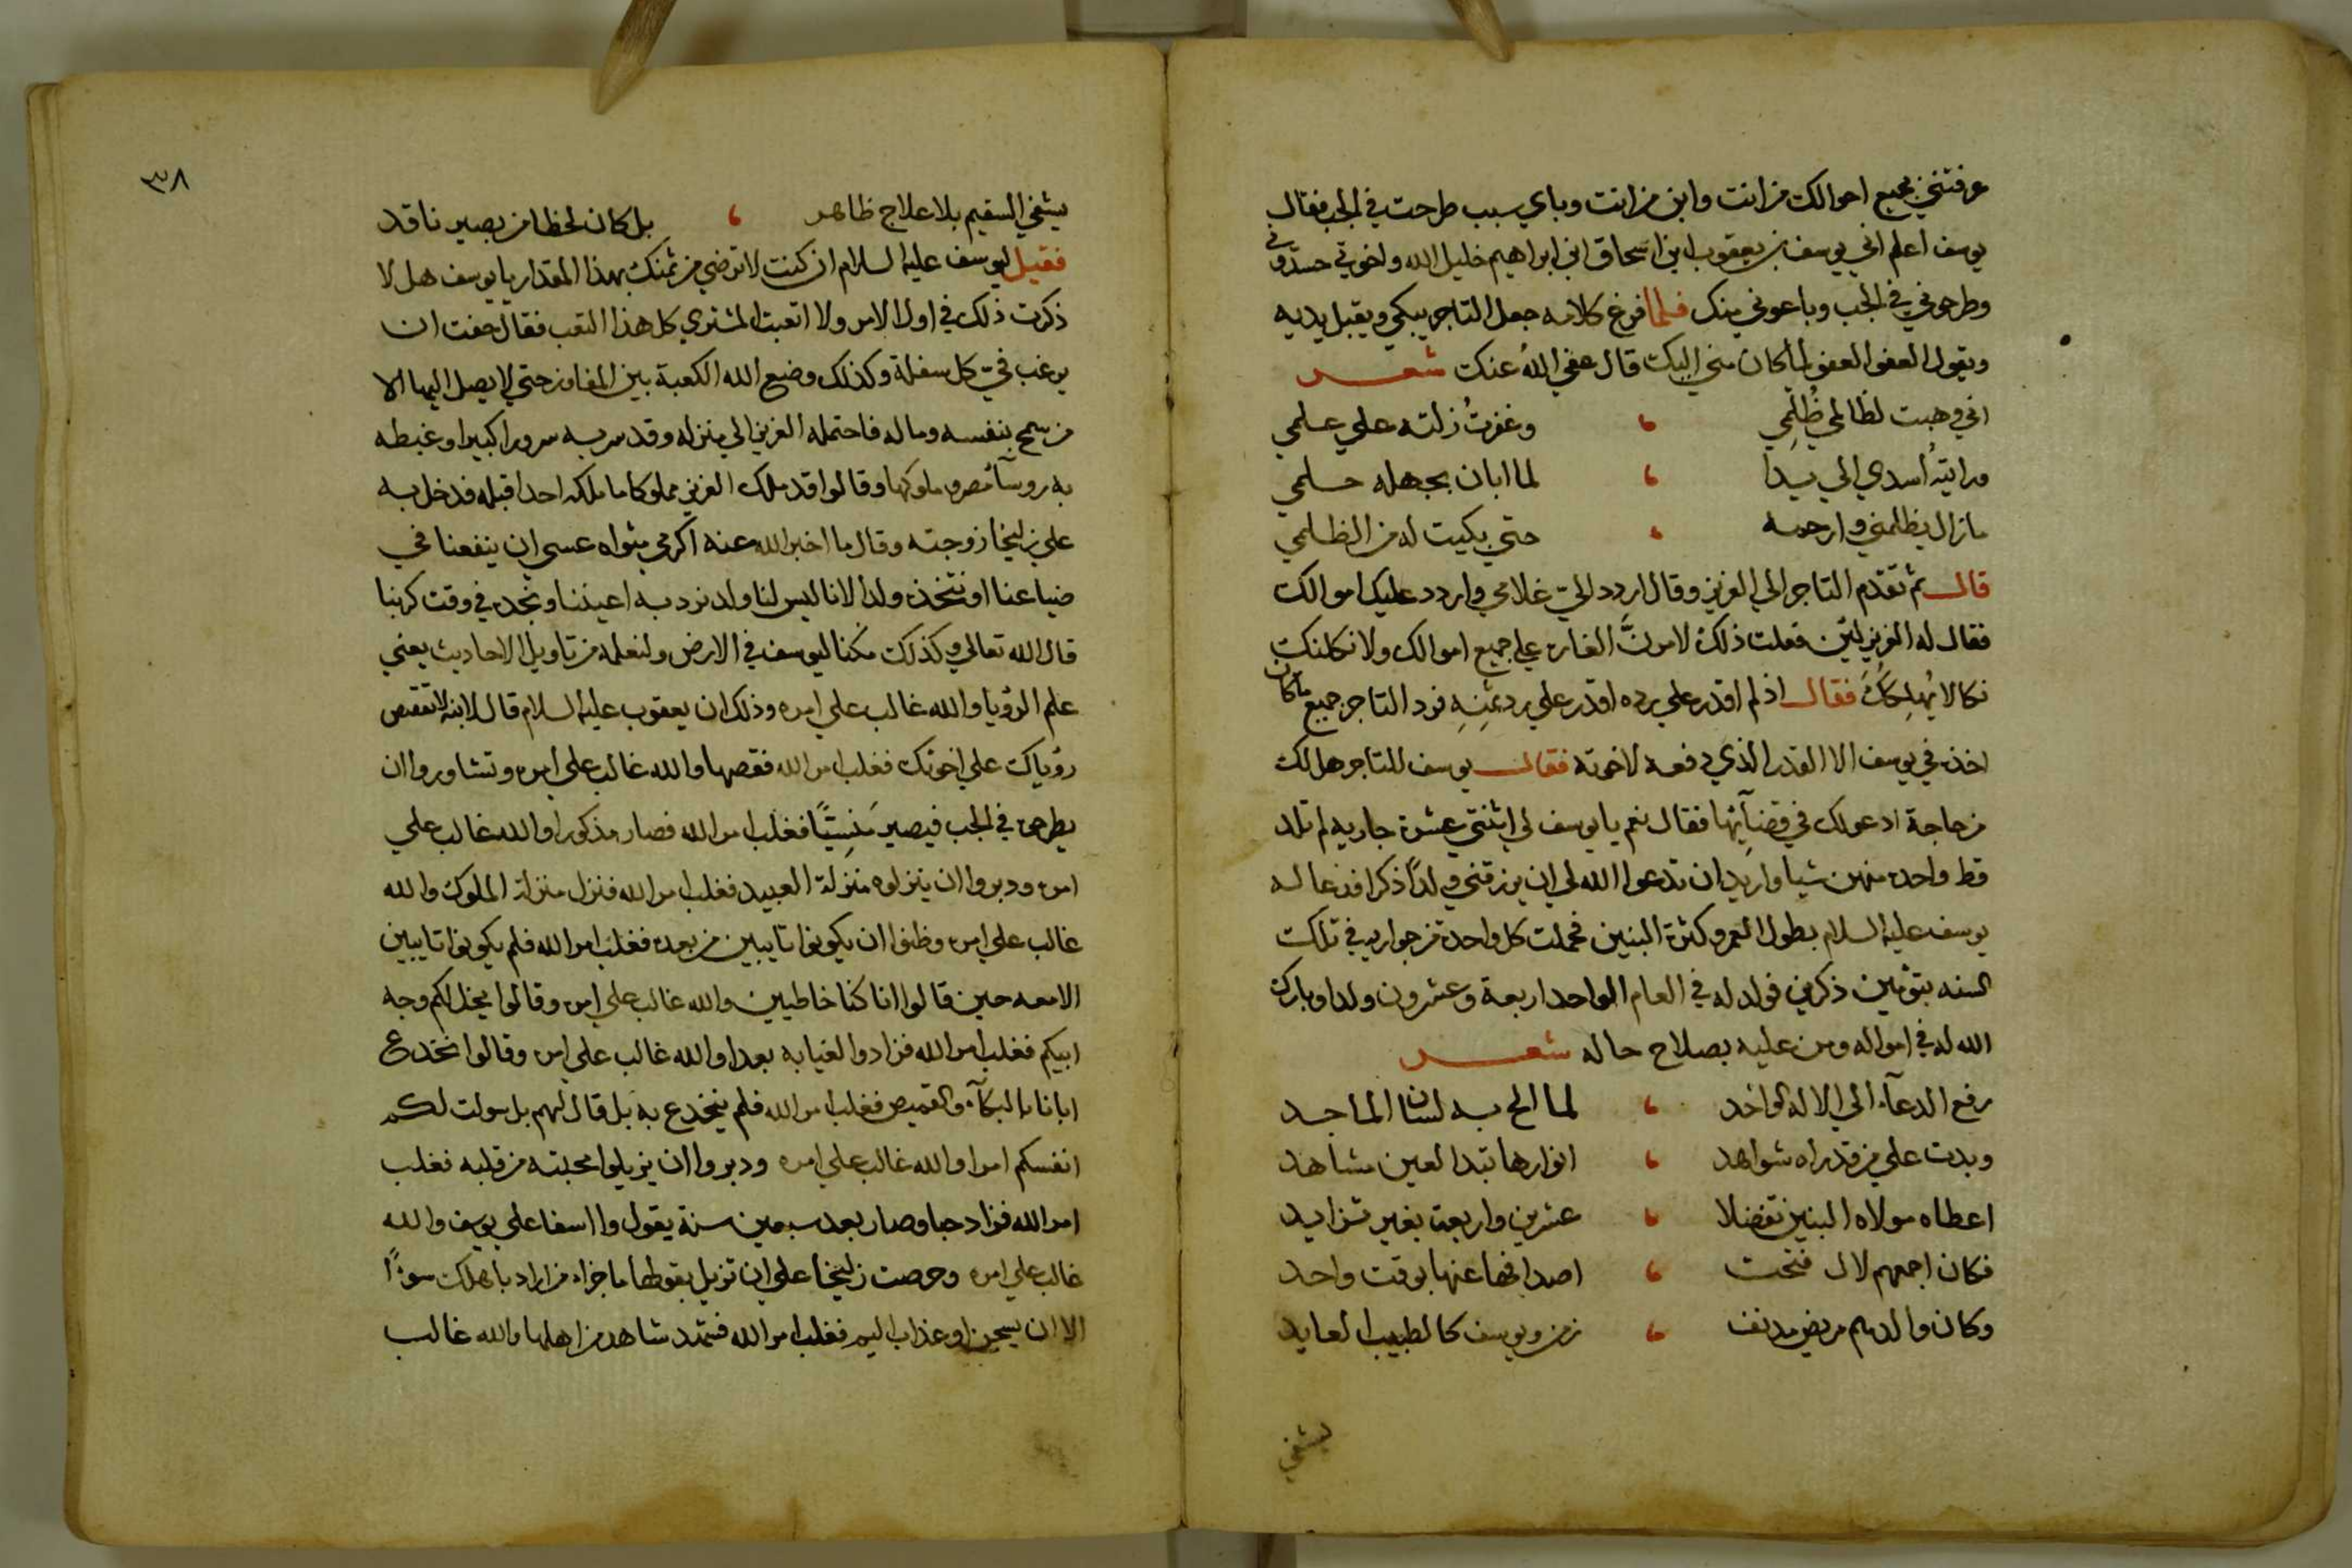 عرفتني بجميع احوالك من انت وابن من انت وباي سبب طرحت في الجب فقال
يوسف اعلم اني يوسف بن يعقوب ابن اسحاق ابن ابراهيم خليل الله واخوتي حسدوني
وطرحوني في الجب وباعوني منك فلما فرغ كلامه جعل التاجر يبكي ويقبل يديه
ويقول العفو العفو لما كان مني اليك قال عفى الله عنك شعر
اني وهبت لظالمي ظُلْمِي ، وغفرتُ زلته علي علمي
ورايتهُ اسدي الي يدا ، لما ابان بجهله حلمي
مازال يظلمني وارحمه ، حتي بكيت له من الظلمي
قال ثم تقدم التاجر الي العزيز وقال اردد اليّ غلامي واردد عليك اموالك
فقال له العزيز لئن فعلت ذلك لامرنَّ الغاره علي جميع اموالك ولانكلنك
نكالا يُهلِككَ فقال اذ لم اقدر علي رده اقدر علي رد ثمنِهِ فرد التاجر جميع ماكان
اخذه في يوسف الا القدر الذي دفعه لاخوته فقال يوسف للتاجر هل لك
من حاجة ادعو لك في قضآئها فقال نعم يا يوسف لي اثنتي عشرة جاريه لم تلد
قط واحده منهن شيا واريد ان تدعوا الله لي ان يرزقني ولداً ذكرا فدعا له
يوسف عليه السلام بطول العمر وكثرة البنين فحملت كل واحدة من جواريه في تلك
السنه بتوئمين ذكرين فولد له في العام الواحد اربعة وعشرون ولدا وبارك
الله له في امواله ومن عليه بصلاح حاله شعر
رفع الدعآء الي الاله الواحد ، لما الح به لسان الماجد
وبدت علي من قد راه شواهد ، انوارها تبدا لعين مشاهد
اعطاه مولاه البنين تفضلا ، عشرين واربعة بغير تزايد
فكان اجمعهم لال فتحت ، اصدافها عنها بوقت واحد
وكان والدهم مريض مدنف ، زمن ويوسف كالطبيب العايد
يشفي
٣٨
يشفي السقيم بلا علاج ظاهر ، بل كان لحظا من بصير ناقد
فقيل ليوسف عليه السلام ان كنت لا ترضي من ثمنك بهذا المقدار يا يوسف هل لا
ذكرت ذلك في اول الامر ولا اتعبت المشتري كل هذا التعب فقال خفت ان
يرغب فيّ كل سفلة وكذلك وضع الله الكعبة بين المفاوز حتي لا يصل اليها الا
من سمح بنفسه وماله فاحتمله العزيز الي منزله وقد سر به سرورا كبيرا وغبطه
به روسآ مصر وملوكها وقالوا قد ملك العزيز مملوكا ما ملكه احدا قبله فدخل به
علي زليخا زوجته وقال ما اخبر الله عنه اكرمي مثواه عسي ان ينفعنا في
ضياعنا او نتخذه ولدا لانا ليس لنا ولد نرد به اعيننا ونجده في وقت كربنا
قال الله تعالي وكذلك مكنا ليوسف في الارض ولنعلمه من تاويل الاحاديث يعني
علم الرؤيا والله غالب علي امره وذلك ان يعقوب عليه السلام قال لابنه لا تقصص
رؤياك علي اخوتك فغلب امر الله فقصها والله غالب علي امره وتشاوروا ان
يطرحوه في الجب فيصير مَنسِيًا فغلب امر الله فصار مذكورا والله غالب علي
امره ودبروا ان ينزلوه منزلة العبيد فغلب امر الله فنزل منزلة الملوك والله
غالب علي امره وظنوا ان يكونوا تايبين من بعده فغلب امر الله فلم يكونوا تايبين
الا معه حين قالوا انا كنا خاطيين والله غالب علي امره وقالوا يخل لكم وجه
ابيكم فغلب امر الله فزادوا الغيابه بعدا والله غالب علي امره وقالوا نخدع
ابانا بالبكآء والقميص فغلب امر الله فلم ينخدع به بل قال لهم بل سولت لكم
انفسكم امرا والله غالب علي امره ودبروا ان يزيلوا محبته من قلبه فغلب
امر الله فزاد حبا وصار بعد سبعين سنة يقول وا اسفا علي يوسف والله
غالب علي امره وحرصت زليخا علي ان تزيل بقولها ما جزاء من اراد باهلك سوءً
الا ان يسجن او عذاب اليم فغلب امر الله فشهد شاهد من اهلها والله غالب